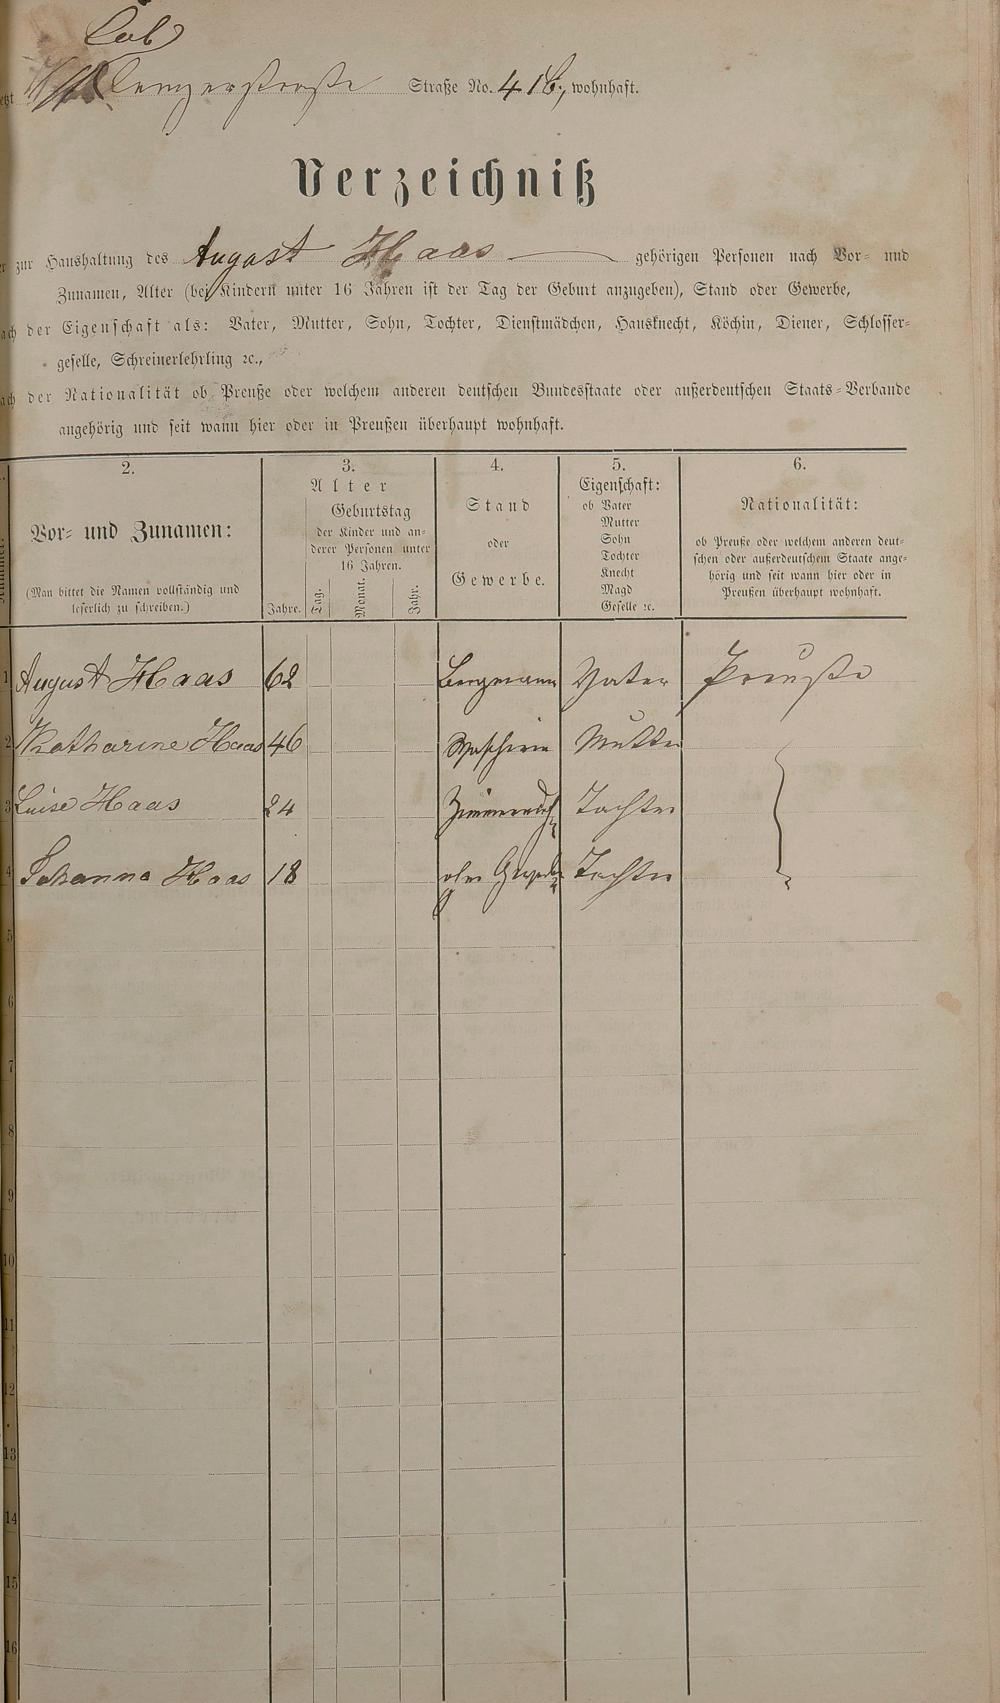 Löb
Straße No. 41b, wohnhaft.
Verzeichniß
zur Haushaltung des August Haas gehörigen Personen nach Vor- und
Zunamen, Alter (bei Kindern unter 16 Jahren ist der Tag der Geburt anzugeben), Stand oder Gewerbe,
der Eigenschaft als: Vater, Mutter, Sohn, Tochter, Dienstmädchen, Hausknecht, Köchin, Diener, Schlosser-
geselle, Schreinerlehrling ꝛc.,
der Nationalität ob Preuße oder welchem anderen deutschen Bundesstaate oder außerdeutschen Staats-Verbande
angehörig und seit wann hier oder in Preußen überhaupt wohnhaft.
2.
Vor- und Zunamen:
(Man bittet die Namen vollständig und
leserlich zu schreiben.)
3.
Alter
Geburtstag
der Kinder und an-
derer Personen unter
16 Jahren.
Jahre. Tag. Monat. Jahr.
4.
Stand
oder
Gewerbe.
5.
Eigenschaft:
ob Vater
Mutter
Sohn
Tochter
Knecht
Magd
Geselle ꝛc.
6.
Nationalität:
ob Preuße oder welchem anderen deut-
schen oder außerdeutschem Staate ange-
hörig und seit wann hier oder in
Preußen überhaupt wohnhaft.
1 August Haas 62 Bergmann Vater Preuße
2 Katharine Haas 46 Mutter
3 Luise Haas 24 Tochter
4 Johanna Haas 18 Tochter
5
6
7
8
9
10
11
12
13
14
15
16